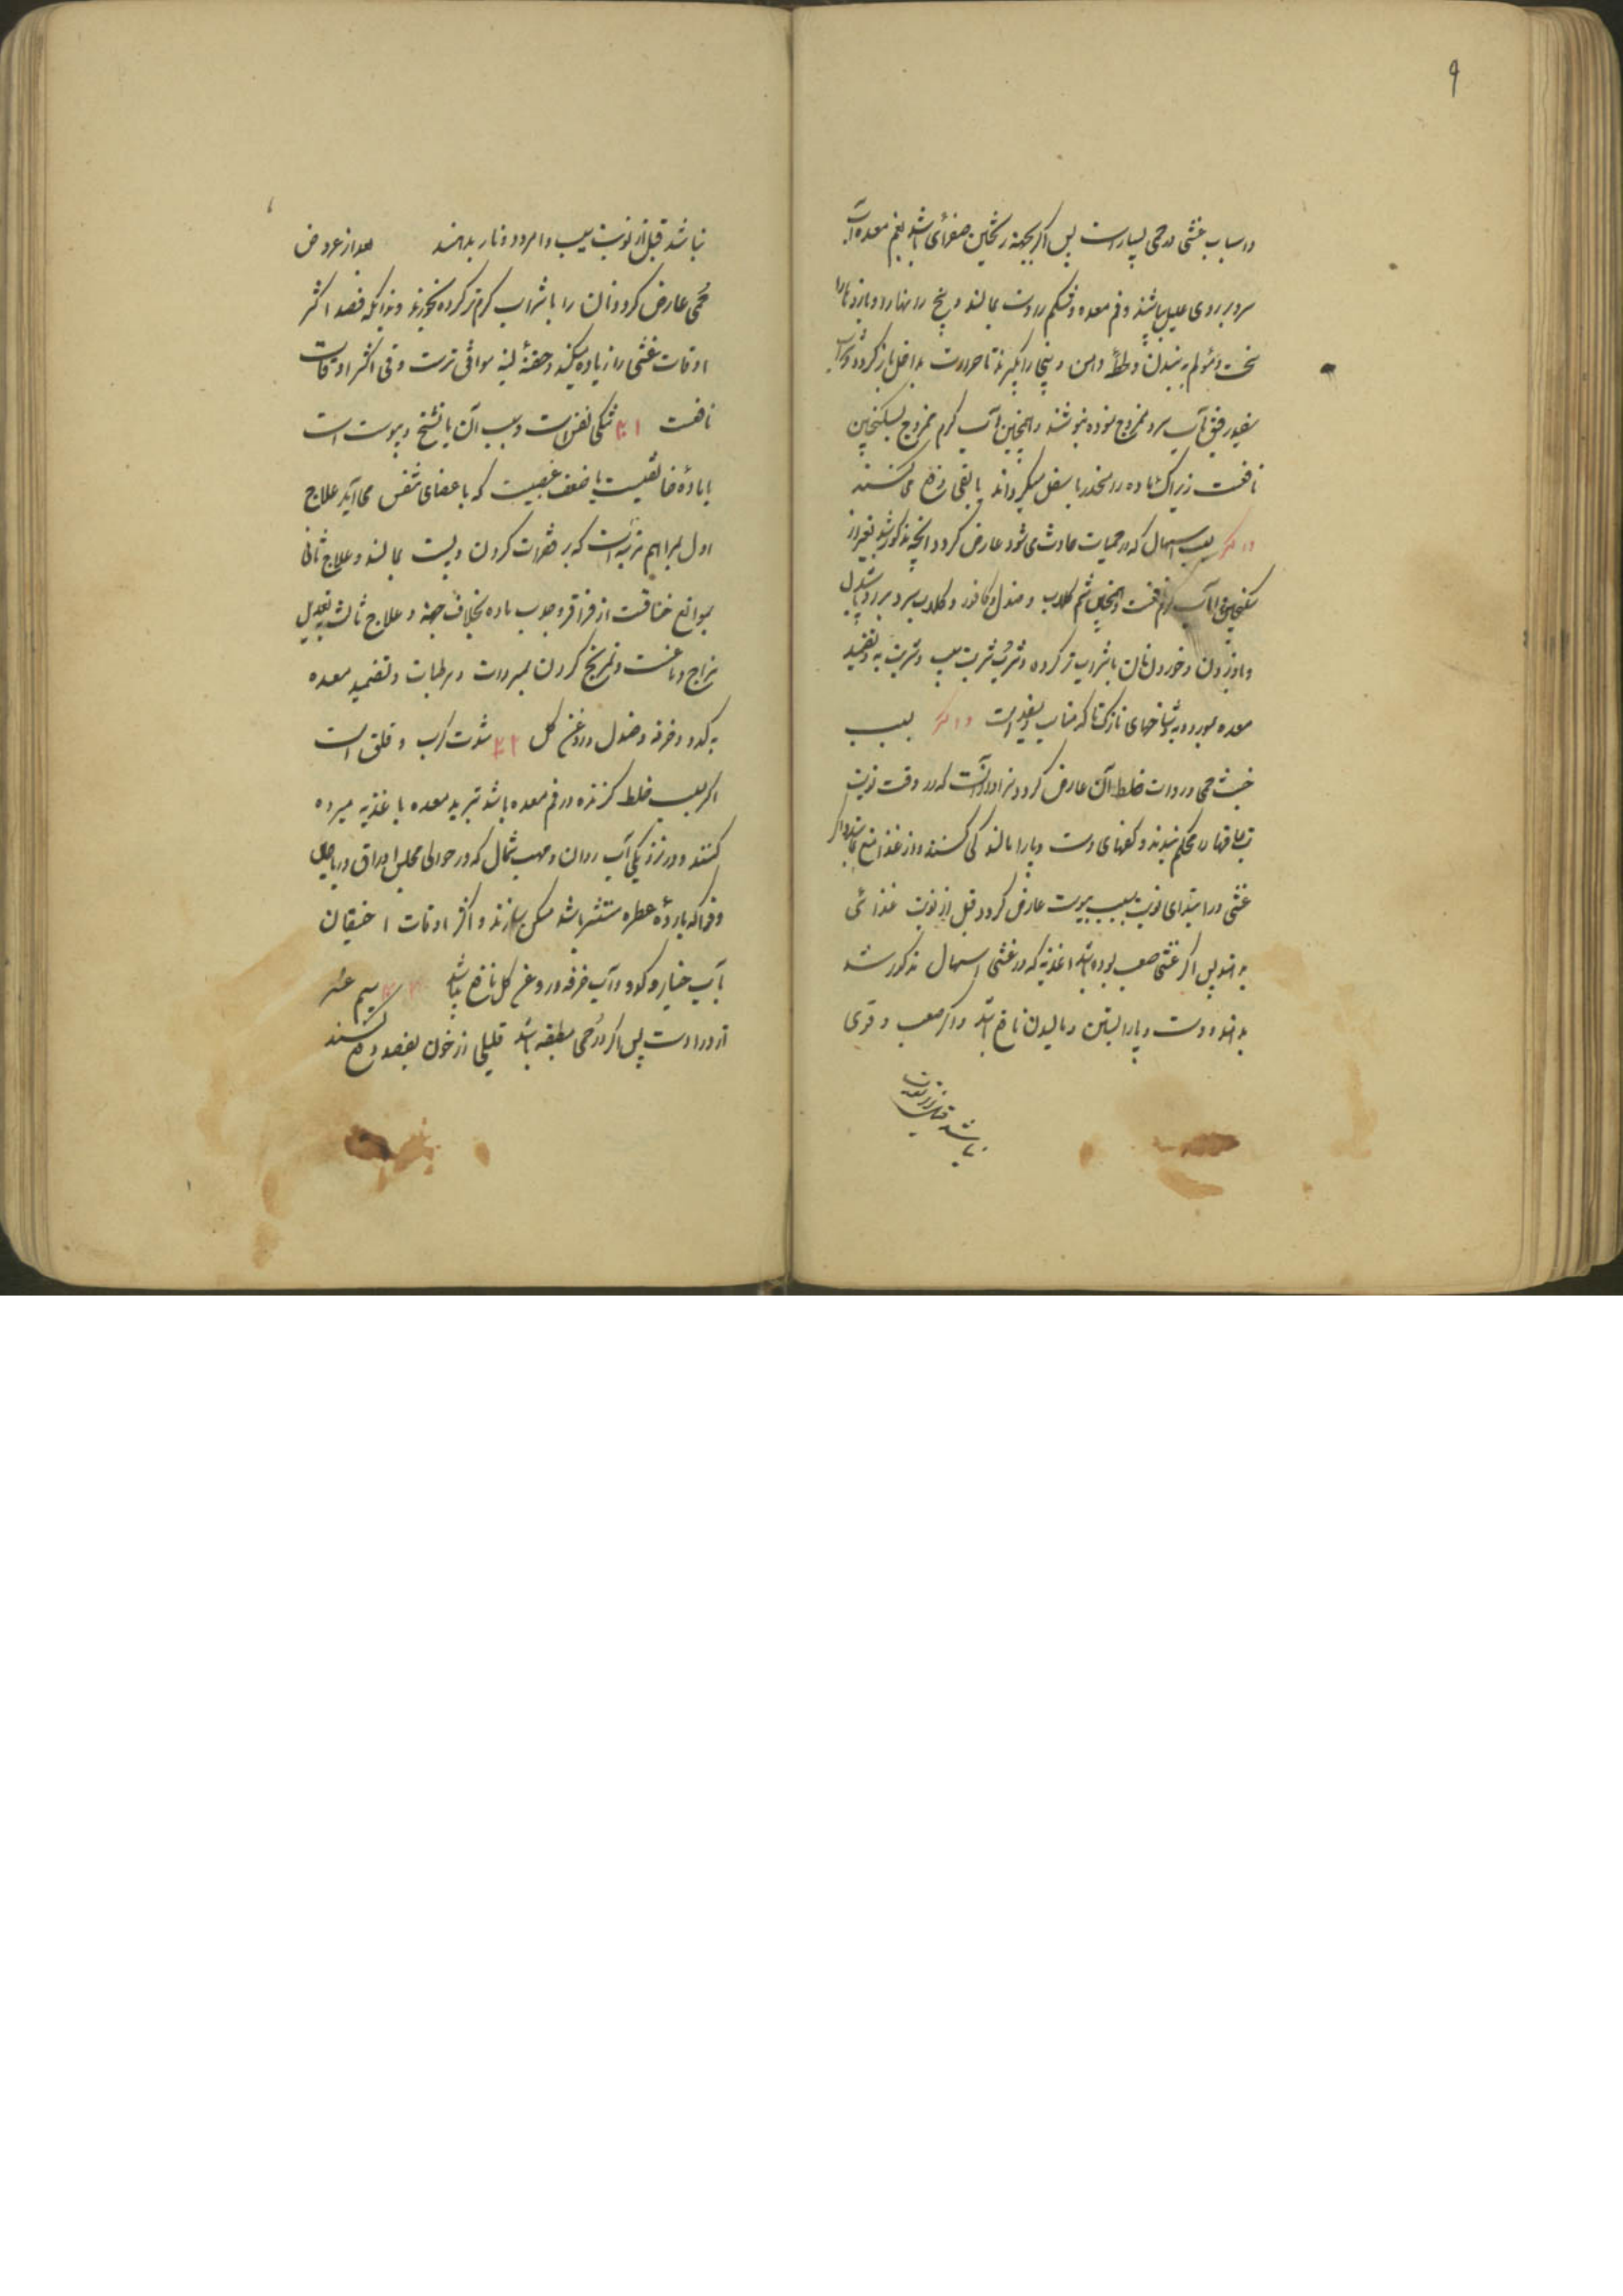 ۹
و اسباب غشی در حمی بسیار است پس اگر بجهة ریختن صفرای باشد بفم معده آب
سرد بر روی علیل باشند و فم معده و شکم را دست بمالند و پنج را نهار و بازوها را
سخت و مؤلم به بندند و تا حرارت بداخل باز گردد و شراب
سفید رقیق بآب سرد ممزوج نموده بنوشند و همچنین آب گرم ممزوج بسکنجبین
نافعست زیراکه ماده را منحدر باسفل میگرداند یا بقی دفع می کنند
و اگر بسبب اسهال که در حمیات حادث می شود عارض گردد آنچه مذکور شد بغیر از
سکنجبین و آب گرم نافعست و همچنین شم گلاب و صندل و کافور و گلاب سرد
و خوردن نان بشراب تر کرده و شرب شربت سیب و شربت به و تضمید
معده بمورد و به و شاخهای نازک تاک مناسب و مفید است و اگر بسبب
خبث حمی و رداءت خلط آن عارض گردد سزاوار آنست که در وقت نوبت
ساقها را محکم ببندند و کفهای دست و پا را مالند کی کنند و از غذا منع نمایند و اگر
غشی در ابتدای نوبت بسبب یبوست عارض گردد قبل از نوبت غذائی
بدهند پس اگر غشی صعب بوده باشد اغذیه که در غشی اسهال مذکور شد
بدهند و دست و پا را بستن و مالیدن نافع باشد و اگر صعب و قوی
نباشد قبل از نوبت
نباشد قبل از نوبت سیب و امرود و نار بدهند بعد از عروض
حمی عارض گردد نان را با شراب گرم تر کرده بخورند و بدانکه فصد اکثر
اوقات غشی را زیاده میکند و حقنهٔ لینه موافق ترست و قی اکثر اوقات
نافعست تنگی نفس است و سبب آن یا تشنج و یبوست است
یا مادهٔ خانقیست یا ضعف عصبیست که باعضای تنفس می آید علاج
اول بمراهم مرتبه است که بر فقرات گردن و پشت بمالند و علاج ثانی
بموانع خناقست از غراغر و جذب ماده بخلاف جهة و علاج ثالث بتعدیل
مزاج دماغست و تمریخ گردن بمبردات و مرطبات و تضمید معده
به کدو و خرفه و صندل و روغن گل شدت کرب و قلق است
اگر بسبب خلط گزنده در فم معده باشد تبرید معده با غذیه مبرده
کنند و در نزدیکی آب روان و مهب شمال که در حوالی مجلس اوراق و ریاحین
و فواکه باردهٔ عطره منتشر باشد مسکن سازند و اکثر اوقات احتقان
بآب خیار و کدو و آب خرفه و روغن گل نافع باشد سیم عسر
ازدراد است پس اگر در حمی مطبقه باشد قلیلی از خون بفصد دفع کنند